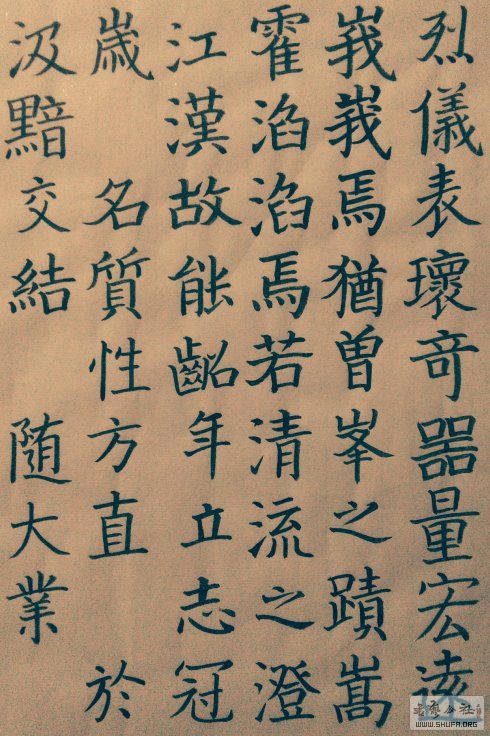 烈儀表瓌竒器量宏
峩峩焉猶曽峯之蹟嵩
霍滔滔焉若清流之澄
江漢故能齠年立志冠
歲 名質性方直 於
汲黯交結 随大業
WWW.SHUFA.ORG